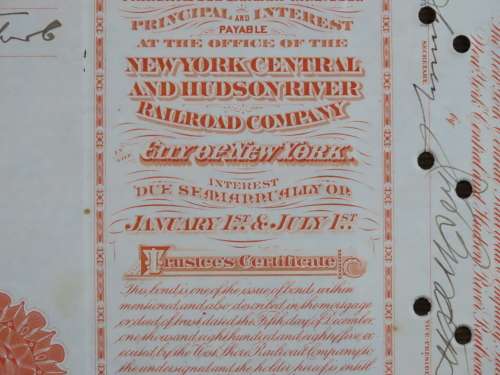 PRINCIPAL AND INTEREST
PAYABLE
AT THE OFFICE OF THE
NEW YORK CENTRAL
AND HUDSON RIVER
RAILROAD COMPANY
IN THE
CITY OF NEW YORK.
INTEREST
DUE SEMIANNUALLY ON
JANUARY 1ST. & JULY 1ST.
Trustees Certificate
This bond is one of the issue of bonds within
mentioned, and also described in the mortgage
or deed of trust dated the Fifth day of December,
one thousand eight hundred and eighty five, ex
ecuted by the West Shore Railroad Company to
the undersigned, and the holder hereof is entit
SECRETARY
by
VICE-PRESIDENT